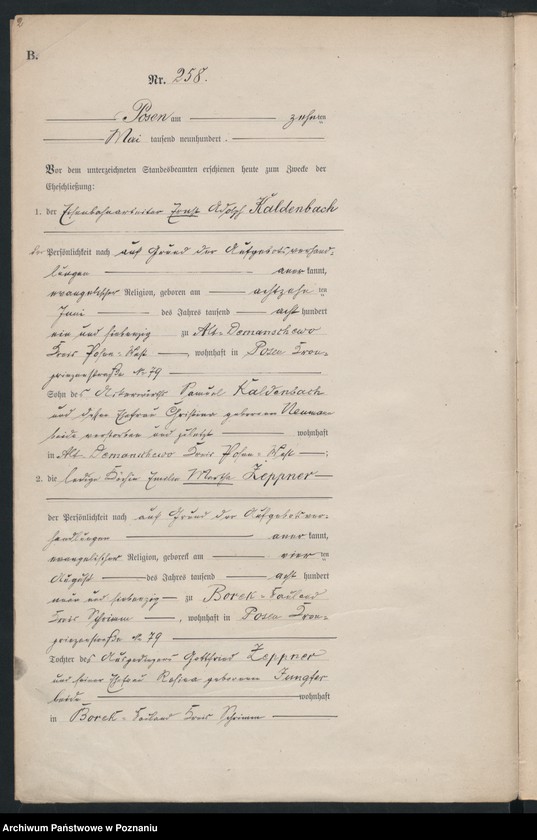 B.
Nr. 258.
Posen am zehnten
Mai tausend neunhundert.
Vor dem unterzeichneten Standesbeamten erschienen heute zum Zwecke der
Eheschließung:
1. der Eisenbahnarbeiter Ernst Adolf Kaldenbach
der Persönlichkeit nach auf Grund der Aufgebotsverhand-
lungen anerkannt,
evangelischer Religion, geboren am achtzehnten
Juni des Jahres tausend acht hundert
ein und siebenzig zu Alt-Demanschewo
Kreis Posen-West, wohnhaft in Posen Kron-
prinzenstraße No 79
Sohn des Samuel Kaldenbach
und dessen Ehefrau Christine geborenen Neuman
beide verstorben und zuletzt wohnhaft
in Alt-Demanschewo Kreis Posen-West;
2. die ledige Köchin Emilie Martha Zeppner
der Persönlichkeit nach auf Grund der Aufgebotsver-
handlungen anerkannt,
evangelischer Religion, geboren am vierten
August des Jahres tausend acht hundert
neun und siebenzig zu Borek-Hauland
Kreis Schrimm, wohnhaft in Posen Kron-
prinzenstraße No 79
Tochter des Ausgedingers Gottfried Zeppner
und seiner Ehefrau Rosina geborenen Jungfer
beide wohnhaft
in Borek-Hauland Kreis Schrimm
Archiwum Państwowe w Poznaniu